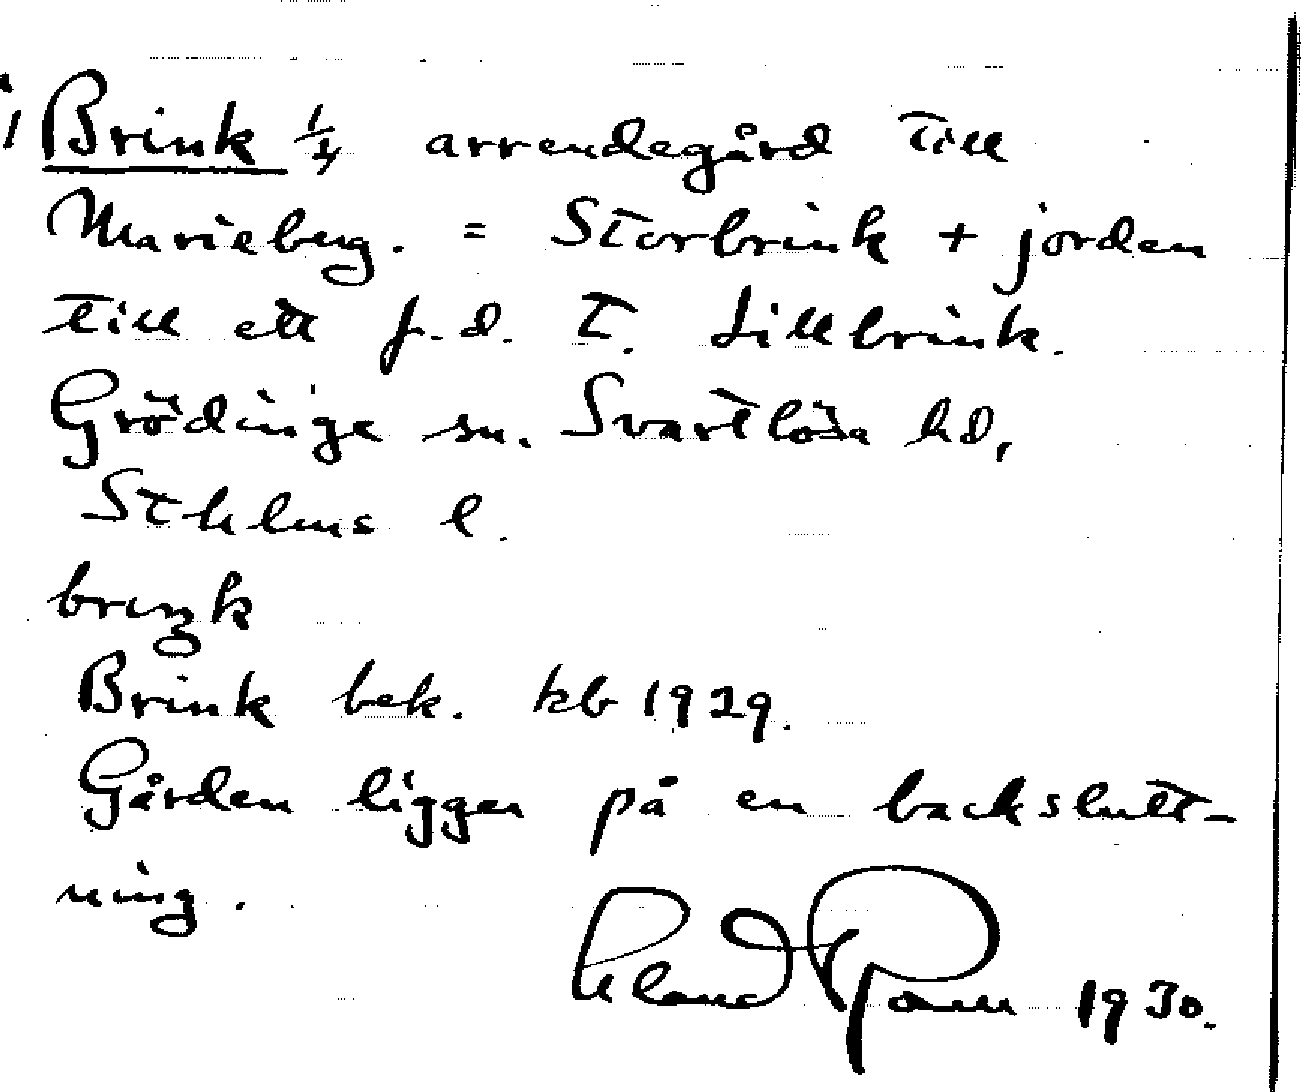 Brink 1/4 arrendegård till
Marieberg. = Storbrink + jorden
till ett f.d. T. Lillbrink.
Grödinge sn. Svartlösa hd,
Sthlms l.
briŋk
Brink bek. kb 1929.
Gården ligger på en backslutt-
ning.
1930.